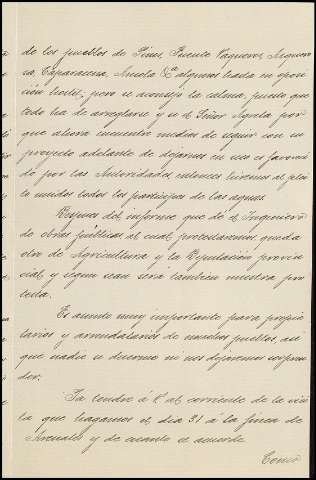 de los pueblos de Pinos, Puente Vaqueros, Asquero
sa, Caparacena, Anula &a algunos hasta en oposi
ción hostil; pero se aconseja la calma, puesto que
todo ha de arreglarse y si el Señor Agrela por
que ahora encuentra medios de seguir con su
proyecto adelante de dejarnos en seco si favoreci
do por las Autoridades, entonces iremos al plei
to unidos todos los partícipes de las aguas.
Despues del informe que dé el Ingeniero
de obras públicas al cual protestaremos, queda
otro de Agricultura y la Diputación provin
cial, y segun sean será tambien nuestra pro
testa.
Es asunto muy importante para propie
tarios y arrendatarios de muchos pueblos, así
que nadie se duerme ni nos dejaremos sorpren
der.
Ya tendré á V. al corriente de la visi
ta que hagamos el dia 31 á la finca de
Arenales y de cuanto se acuerde.
Como